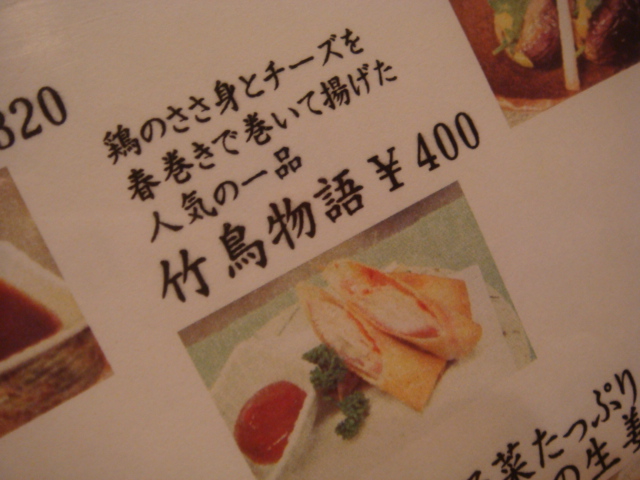 320
鶏のささ身とチーズを
春巻きで巻いて揚げた
人気の一品
竹鳥物語 ¥400
菜たっぷり
の生姜